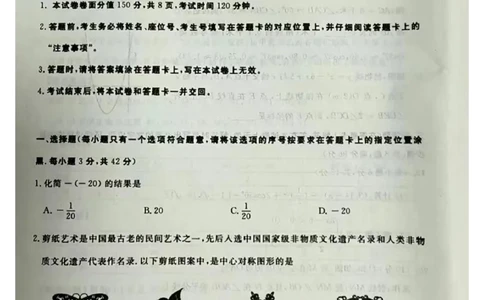 1. 本试卷卷面分值150分,共8页,考试时间120分钟。
2. 答题前,考生务必将姓名、座位号、考生号填写在答题卡的对应位置上,并仔细阅读答题卡上的
“注意事项”。
3. 答题时,请将答案填涂在答题卡上,写在本试卷上无效。
4. 考试结束后,将本试卷和答题卡一并交回。
一、选择题(每小题只有一个选项符合题意,请将该选项的序号按要求在答题卡上的指定位置涂
黑.每小题3分,共42分)
1. 化简-(-20)的结果是
A. -1/20 B. 20 C. 1/20 D. -20
2. 剪纸艺术是中国最古老的民间艺术之一,先后入选中国国家级非物质文化遗产名录和人类非物
质文化遗产代表作名录.以下剪纸图案中,是中心对称图形的是